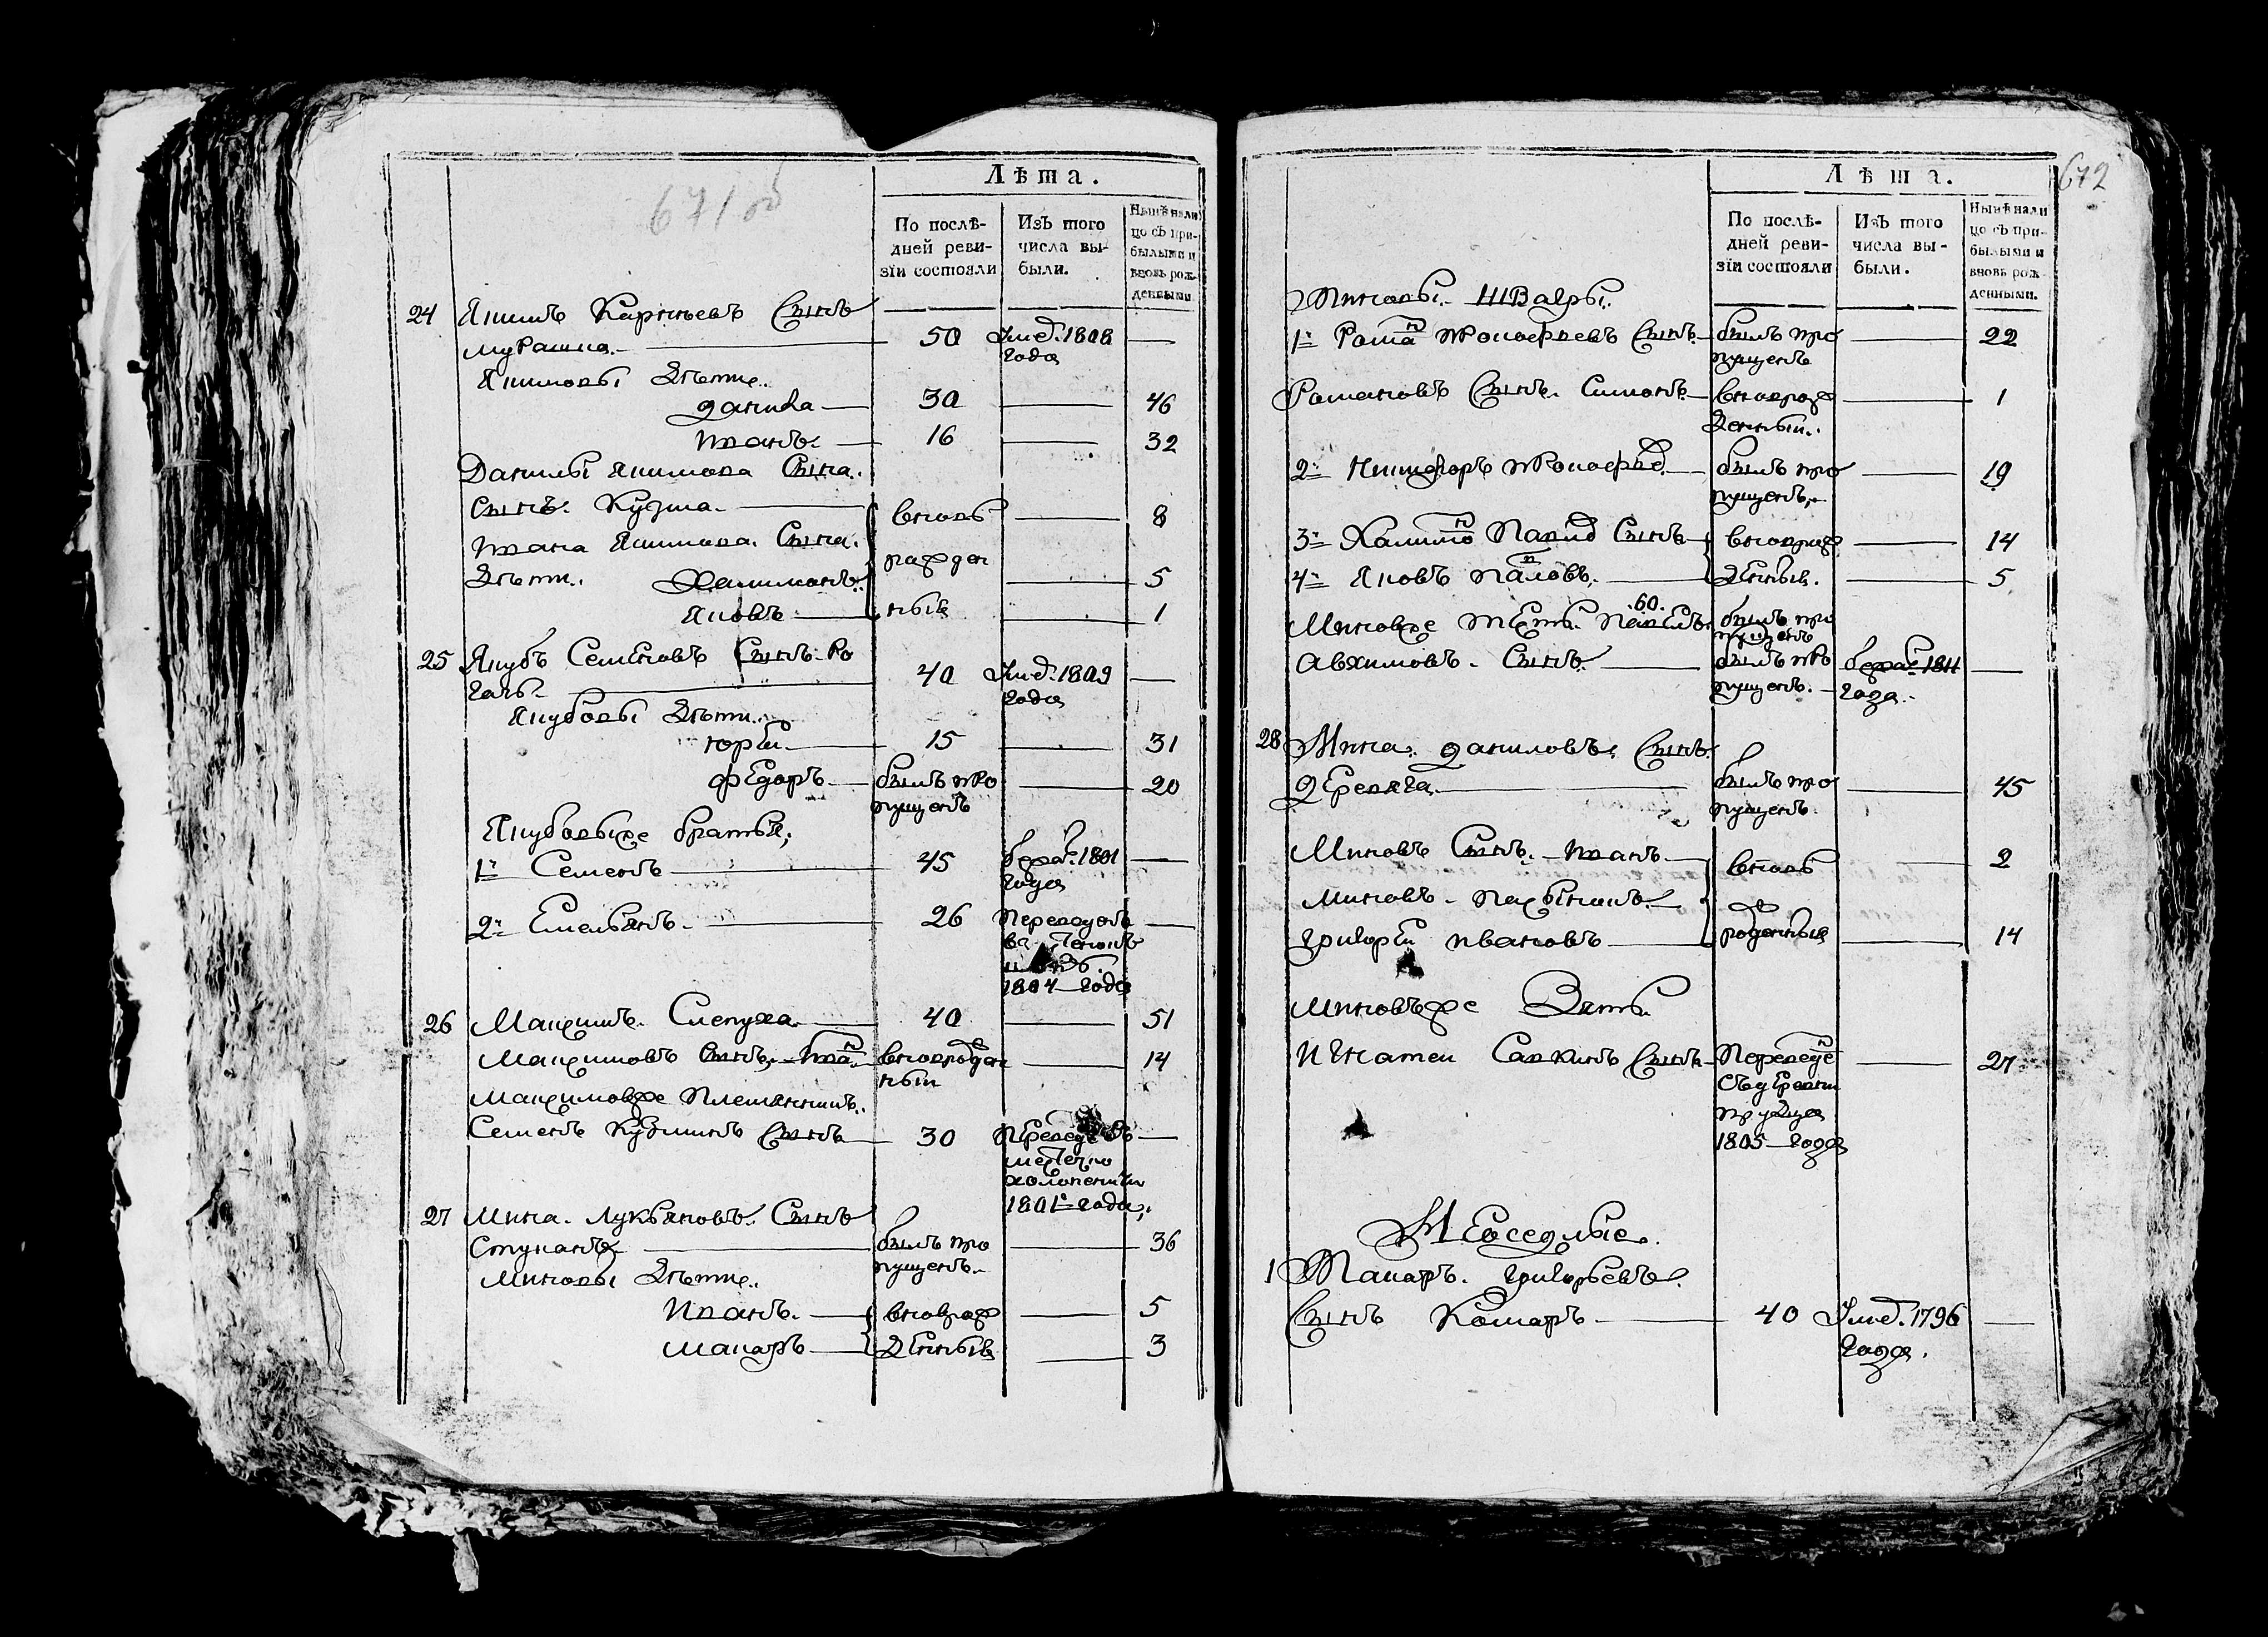 671 об
Лѣта.
По послѣ-
дней реви-
зіи состояли
Изъ того
числа вы-
были.
Нынѣ нали
цо съ при-
былыми и
вновь рож-
денными.
24 Якимъ Карнѣевъ Сынъ
Мурашка. 50 Умер. 1808 года —
Якимовы Дѣти.
данила 30 — 46
иванъ. 16 — 32
Данилы якимова Сына.
сынъ. Кузма. вновь — 8
ивана Якимова. Сына. рожден
Дѣти. Халимонъ ные — 5
Яковъ — 1
25 Якубъ Семеновъ Сынъ Ко
галь. 40 Умер. 1809 года —
Якубовы Дѣти.
юрій 15 — 31
федоръ былъ про
пущенъ — 20
Якубовыже братья,
1й Семенъ 45 1801
года —
2й Емельянъ 26 Переведенъ
1804 года —
26 Максимъ. Слепуха 40 — 51
Максимовъ сынъ, иванъ вноврожден
ный — 14
Максимовже племянникъ.
Семенъ Кузминъ Сынъ 30 Переведенъ
местечко
1801 года, —
27 Мина. Лукьяновъ. Сынъ
Ступакъ былъ про
пущенъ — 36
Миновы Дѣти.
Иванъ. вноврож — 5
макаръ денные — 3
672
Лѣта.
По послѣ-
дней реви-
зіи состояли
Изъ того
числа вы-
были.
Нынѣ нали
цо съ при-
былыми и
вновь рож-
денными.
Миновы. Шваеры.
1й Романъ прокофьевъ Сынъ былъ про
пущенъ — 22
Романовъ Сынъ. Симонъ вноврож
денный. — 1
2й Никифоръ прокофьев. былъ про
пущенъ, — 19
3й Халимонъ Павлов Сынъ вноврож — 14
4й Яковъ павловъ. денные. — 5
60.
Миновже тесть Павелъ былъ про
пущенъ
Авхимовъ. Сынъ. былъ про
пущенъ. 1811
года. —
28 Мина. даниловъ. Сынъ.
деревяга. былъ про
пущенъ. — 45
Миновъ Сынъ. иванъ. вновь — 2
Миновъ. пасынокъ.
григорій ивановъ рожденные — 14
Миновъже Зять
Игнатей Савкинъ Сынъ Переведен
съ деревни
1805 года — 27
Неоседлые.
1 Макаръ. григорьевъ.
Сынъ Комаръ 40 Умер. 1796
года. —